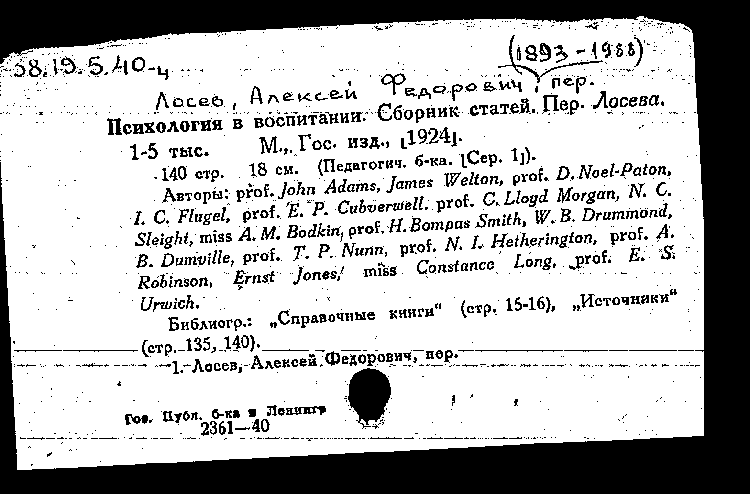 (1893-1988)
38.19.5.40-ц
Лосев, Алексей Федорович, пер.
Психология в воспитании. Сборник статей. Пер. Лосева.
1-5 тыс. М., Гос. изд., [1924].
140 стр. 18 см. (Педагогич. б-ка. [Сер. 1]).
Авторы: prof. John Adams, James Welton, prof. D. Noel-Paton,
I. C. Flugel, prof. E. P. Cubverwell. prof. C. Lloyd Morgan, N. C.
Sleight, miss A. M. Bodkin, prof. H. Bompas Smith, W. B. Drummond,
B. Dumville, prof. T. P. Nunn, prof. N. I. Hetherington, prof. A.
Robinson, Ernst Jones, miss Constance Long, prof. E. S.
Urwich.
Библиогр.: „Справочные книги“ (стр. 15-16), „Источники“
(стр. 135, 140).
1. Лосев, Алексей Федорович, пер.
Гос. Публ. б-ка в Ленингр
2361—40